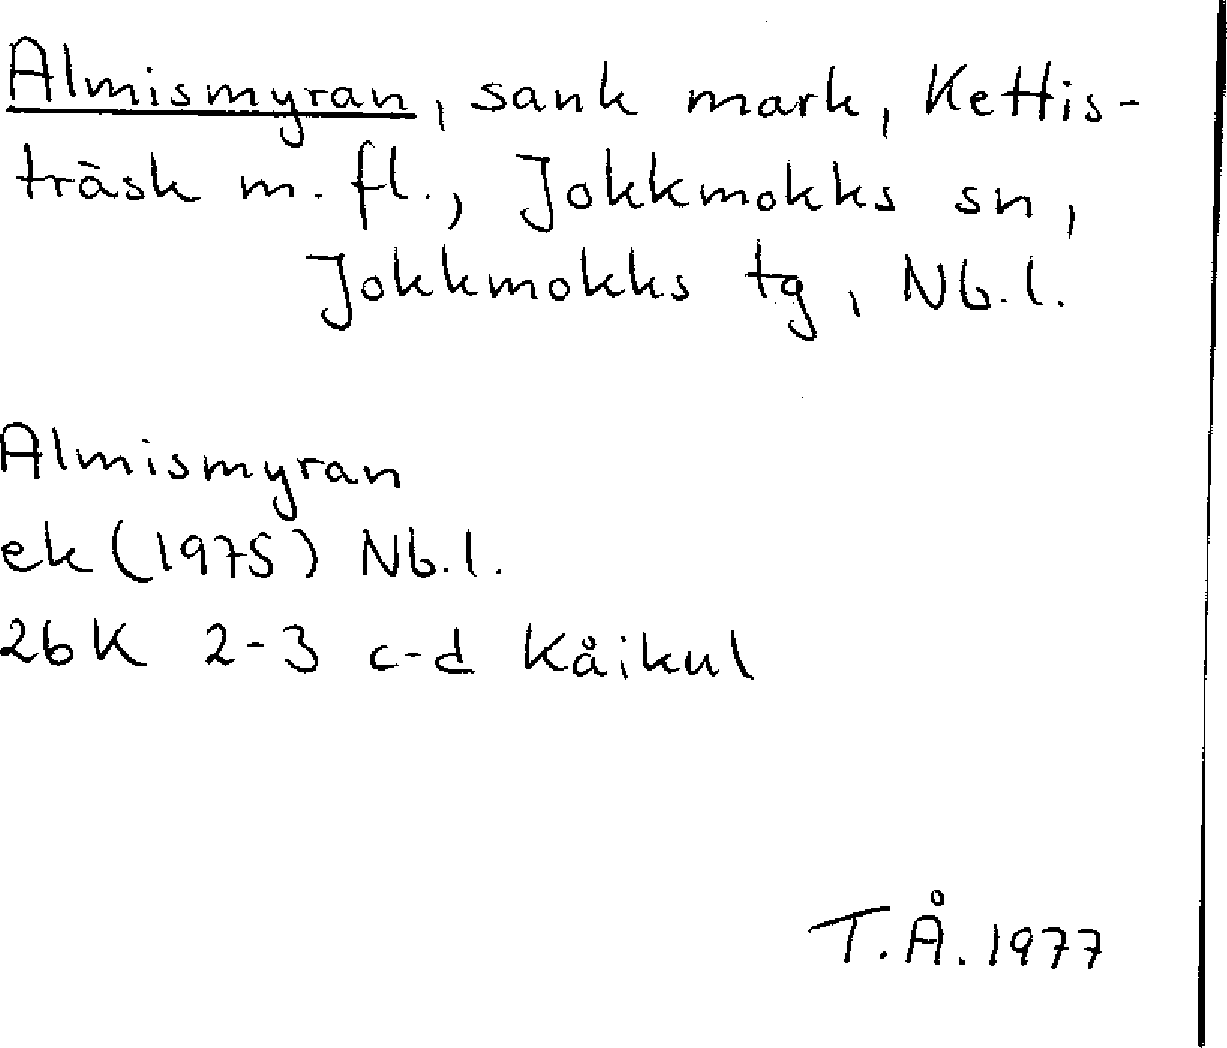 Almismyran, sank mark, Kettis-
träsk m. fl., Jokkmokks sn,
Jokkmokks tg, Nb.l.
Almismyran
ek (1975) Nb.l.
26K 2-3 c-d Kåikul
T.Å. 1977